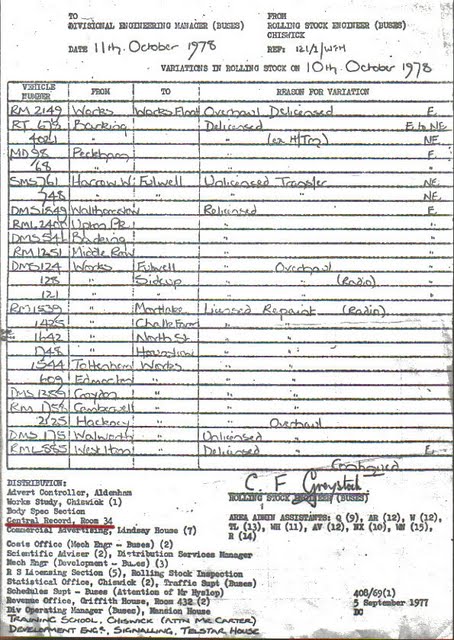 TO
DIVISIONAL ENGINEERING MANAGER (BUSES)
FROM
ROLLING STOCK ENGINEER (BUSES)
CHISWICK
DATE 11th. October 1978
REF: 121/1/WFH
VARIATIONS IN ROLLING STOCK ON 10th. October 1978
VEHICLE NUMBER FROM TO REASON FOR VARIATION
RM 2149 Works Works Float Overhaul Delicensed E.
RT 679 Barking Delicensed E to NE.
4021 " " (ex H/Trg) NE.
MD 98 Peckham " F.
68 " " "
SMS 761 Harrow W. Fulwell Unlicensed Transfer NE.
748 " " " NE.
DMS 1849 Walthamstow Relicensed E.
RML 2400 Upton Pk. " "
DMS 541 Barking " "
RM 1251 Middle Row " "
DMS 124 Works Fulwell " Overhaul "
128 " Sidcup " (Radio) "
121 " " " "
RM 1539 " Mortlake Licensed Repaint (Radio)
1425 " Chalk Farm "
1642 " North St "
1748 " Hounslow "
1544 Tottenham Works "
609 Edmonton " "
DMS 1359 Croydon " "
RM 1758 Camberwell " "
2125 Hackney " " Overhaul
DMS 175 Walworth Unlicensed "
RML 885 West Ham Delicensed E.
Employed
C. F Graystock
ROLLING STOCK ENGINEER (BUSES)
DISTRIBUTION:
Advert Controller, Aldenham
Works Study, Chiswick (1)
Body Spec Section
Central Record, Room 34
Commercial Advertising, Lindsay House (7)
Costs Office (Mech Engr - Buses) (2)
Scientific Adviser (2), Distribution Services Manager
Mech Engr (Development - Buses) (3)
R S Licensing Section (5), Rolling Stock Inspection
Statistical Office, Chiswick (2), Traffic Supt (Buses)
Schedules Supt - Buses (Attention of Mr Hyslop)
Revenue Office, Griffith House, Room 432 (2)
Div Operating Manager (Buses), Mansion House
TRAINING SCHOOL, CHISWICK (ATTN MR CARTER)
DEVELOPMENT ENGR, SIGNALLING, TELSTAR HOUSE
AREA ADMIN ASSISTANTS: Q (9), AR (12), W (12),
TL (13), WH (11), AV (12), NX (10), WN (15),
R (14)
408/69(1)
5 September 1977
DC